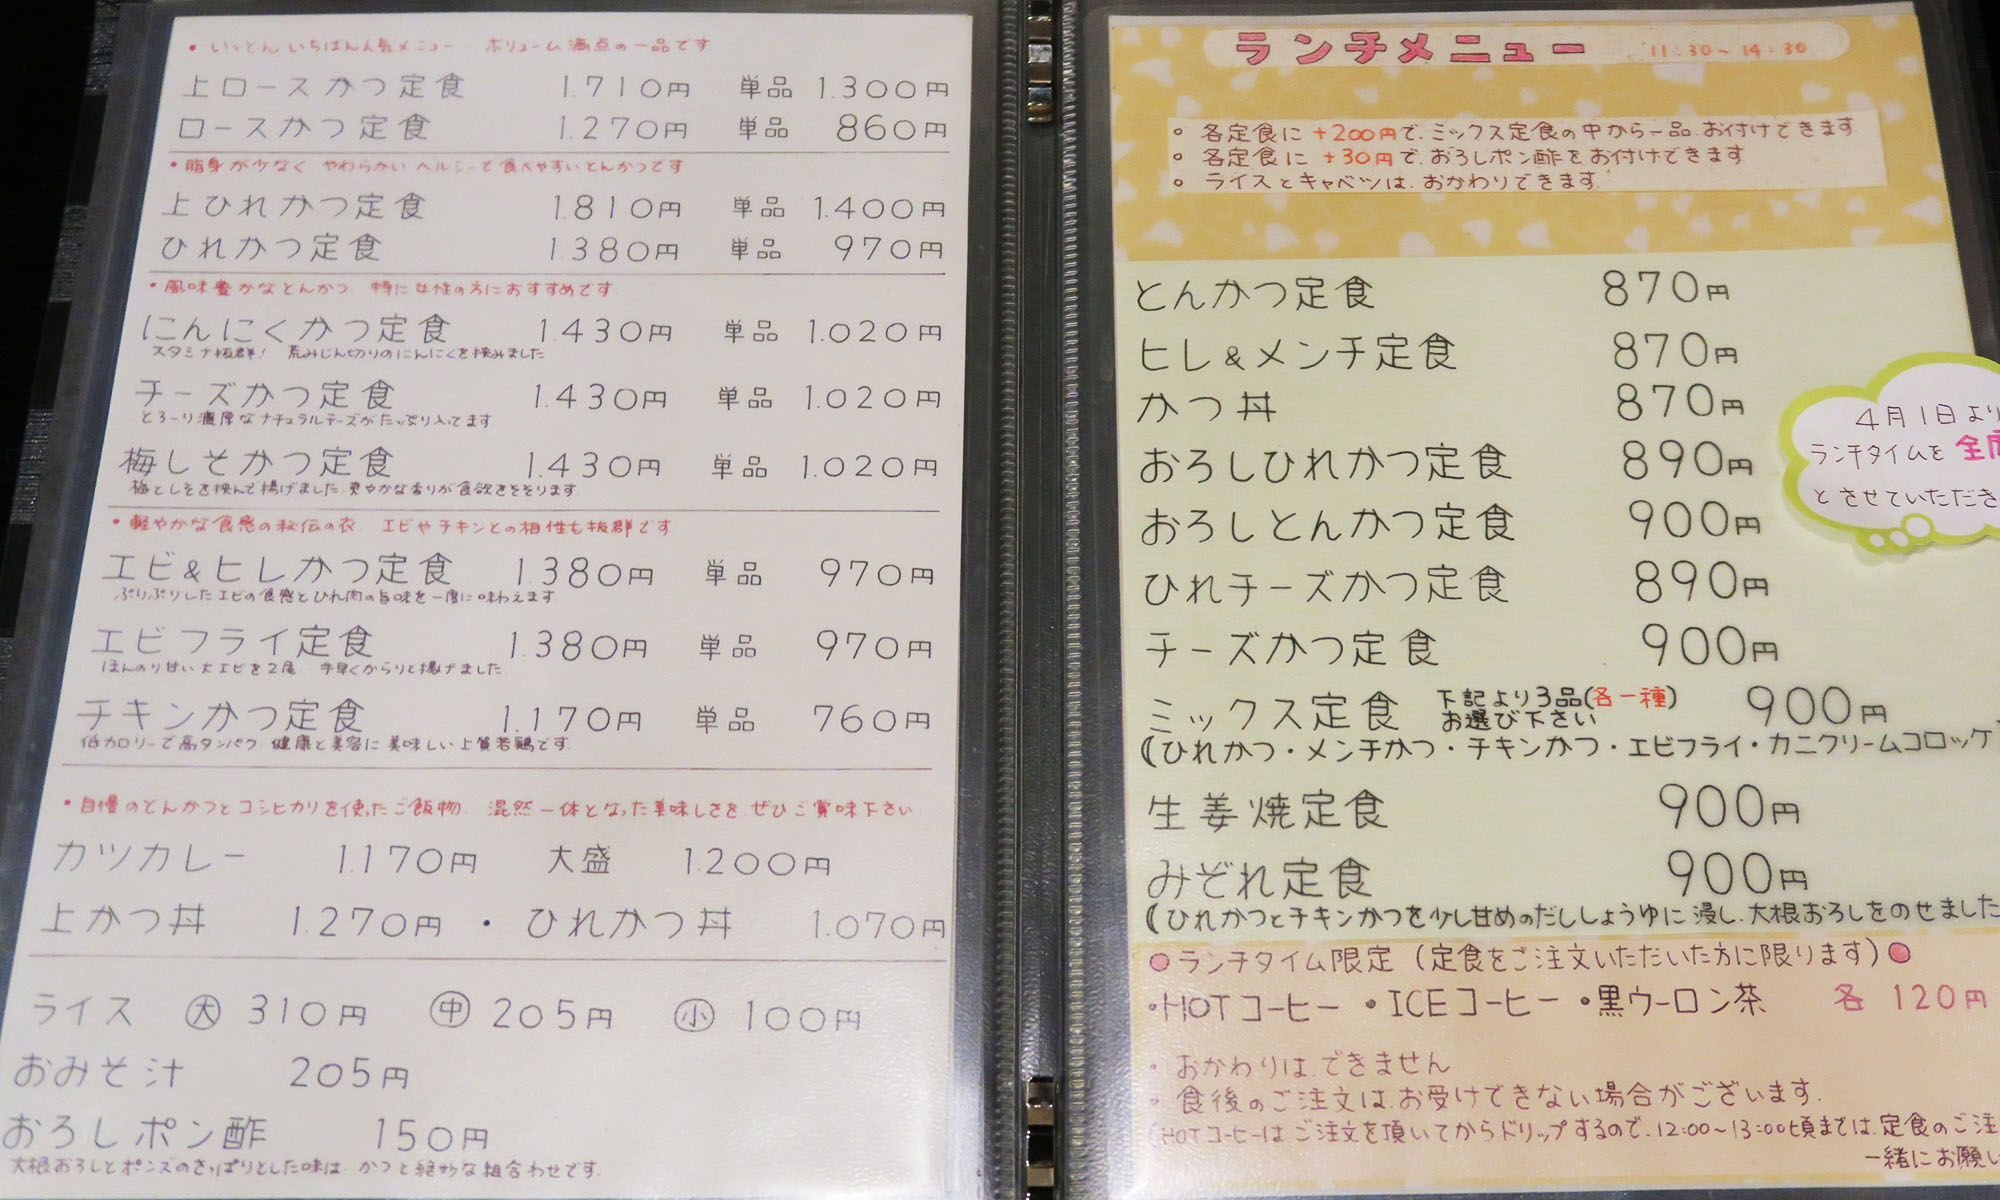 ・いっとんいちばん人気メニュー ボリューム満点の一品です
上ロースかつ定食 1.710円 単品 1.300円
ロースかつ定食 1.270円 単品 860円
・脂身が少なく やわらかい ヘルシーで食べやすいとんかつです
上ひれかつ定食 1.810円 単品 1.400円
ひれかつ定食 1.380円 単品 970円
・風味豊かなとんかつ 特に女性の方におすすめです
にんにくかつ定食 1.430円 単品 1.020円
スタミナ抜群! 荒みじん切りのにんにくを挟みました
チーズかつ定食 1.430円 単品 1.020円
とろ〜り濃厚なナチュラルチーズがたっぷり入ってます
梅しそかつ定食 1.430円 単品 1.020円
梅としそを挟んで揚げました 爽やかな香りが食欲をそそります
・軽やかな食感の秘伝の衣 エビやチキンとの相性も抜群です
エビ&ヒレかつ定食 1.380円 単品 970円
ぷりぷりしたエビの食感とひれ肉の旨味を一度に味わえます
エビフライ定食 1.380円 単品 970円
ほんのり甘い大エビを2尾 手早くからりと揚げました
チキンかつ定食 1.170円 単品 760円
低カロリーで高タンパク 健康と美容に美味しい上質若鶏です
・自慢のとんかつとコシヒカリを使ったご飯物 混然一体となった美味しさを ぜひご賞味下さい
カツカレー 1.170円 大盛 1.200円
上かつ丼 1.270円 ・ ひれかつ丼 1.070円
ライス 大 310円 中 205円 小 100円
おみそ汁 205円
おろしポン酢 150円
大根おろしとポンズのさっぱりとした味は、かつと絶妙な組合わせです
ランチメニュー 11:30〜14:30
。各定食に +200円で、ミックス定食の中から一品、お付けできます
。各定食に +30円で、おろしポン酢をお付けできます
。ライスとキャベツは、おかわりできます
とんかつ定食 870円
ヒレ&メンチ定食 870円
かつ丼 870円
4月1日より
ランチタイムを 全
とさせていただき
おろしひれかつ定食 890円
おろしとんかつ定食 900円
ひれチーズかつ定食 890円
チーズかつ定食 900円
ミックス定食 下記より3品(各一種)お選び下さい 900円
(ひれかつ・メンチかつ・チキンかつ・エビフライ・カニクリームコロッケ)
生姜焼定食 900円
みぞれ定食 900円
(ひれかつとチキンかつを少し甘めのだししょうゆに浸し、大根おろしをのせました
●ランチタイム限定(定食をご注文いただいた方に限ります)●
・HOTコーヒー ・ICEコーヒー ・黒ウーロン茶 各 120円
・おかわりは、できません
・食後のご注文は、お受けできない場合がございます
(HOTコーヒーは、ご注文を頂いてからドリップするので、12:00〜13:00頃までは、定食のご注
一緒にお願い